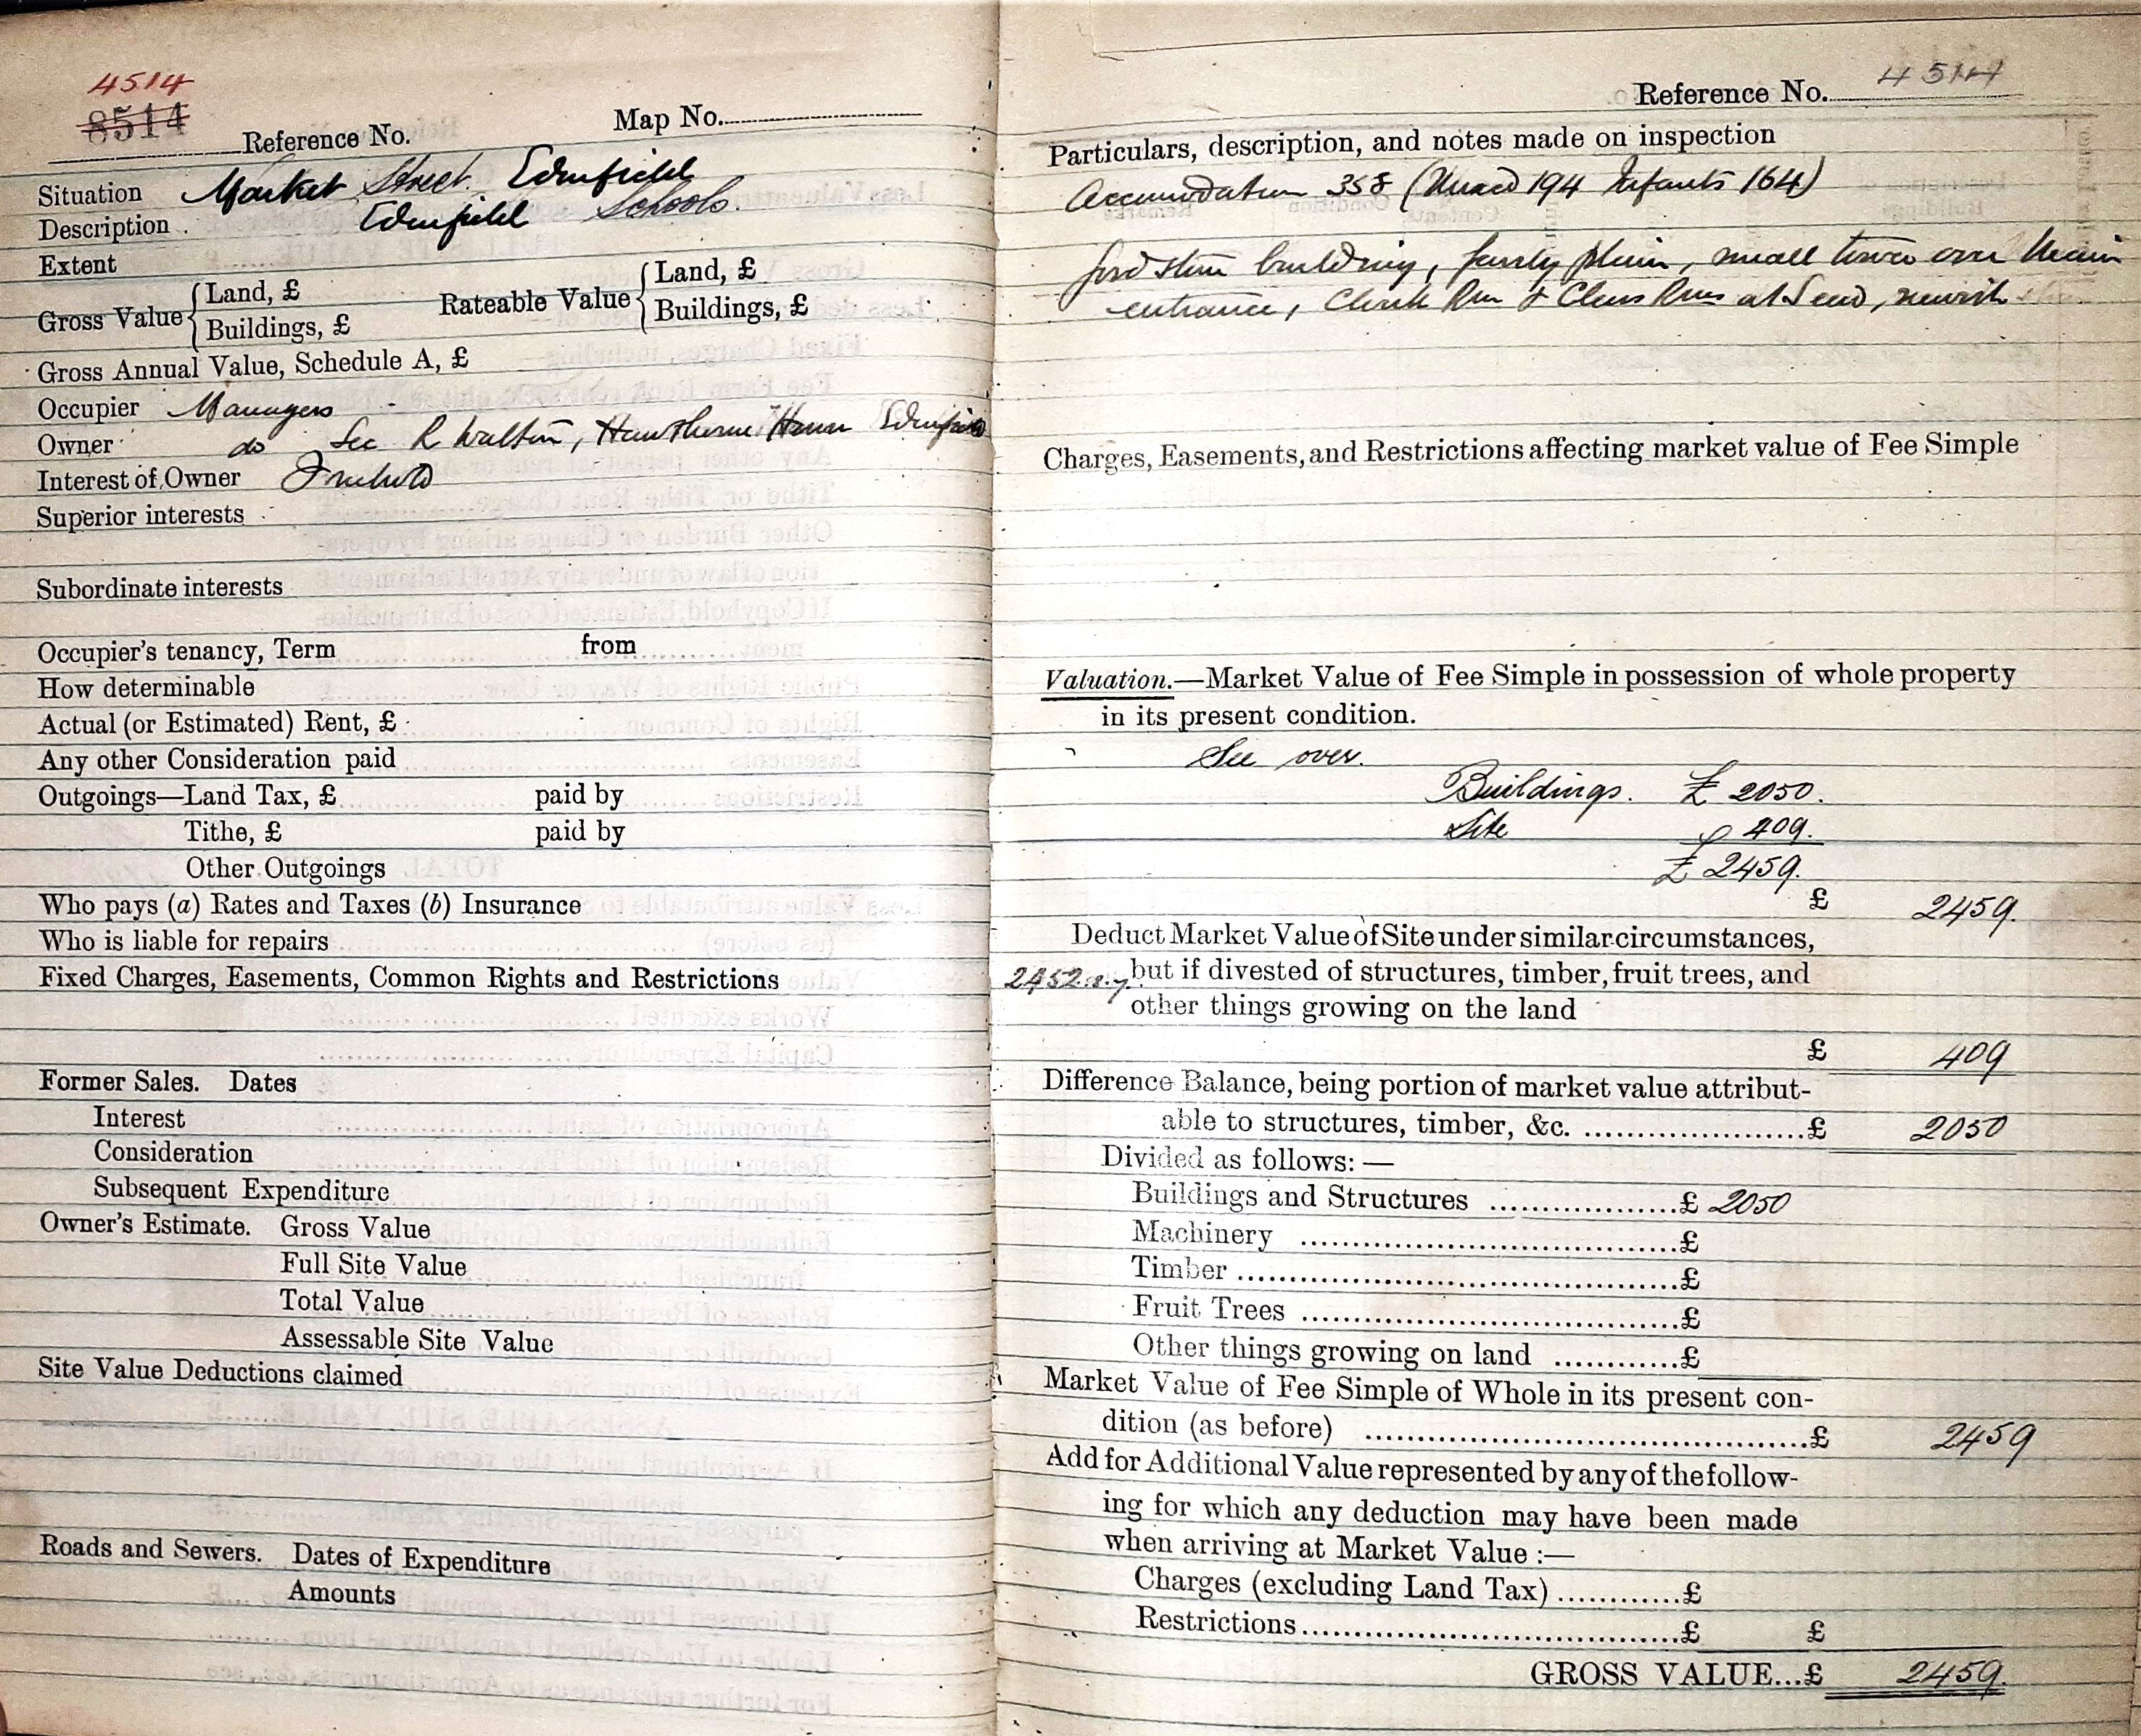 4514
8514
Reference No.
Map No.
Situation Market Street. Edenfield
Description . Edenfield Schools.
Extent
Gross Value Land, £ Rateable Value Land, £
Buildings, £ Buildings, £
Gross Annual Value, Schedule A, £
Occupier Managers
Owner do Sec R Walton, Hawthorne House Edenfield
Interest of Owner Freehold
Superior interests
Subordinate interests
Occupier's tenancy, Term from
How determinable
Actual (or Estimated) Rent, £
Any other Consideration paid
Outgoings—Land Tax, £ paid by
Tithe, £ paid by
Other Outgoings
Who pays (a) Rates and Taxes (b) Insurance
Who is liable for repairs
Fixed Charges, Easements, Common Rights and Restrictions
Former Sales. Dates
Interest
Consideration
Subsequent Expenditure
Owner's Estimate. Gross Value
Full Site Value
Total Value
Assessable Site Value
Site Value Deductions claimed
Roads and Sewers. Dates of Expenditure
Amounts
Reference No. 4514
Particulars, description, and notes made on inspection
Accomodation 358 (Mixed 194 Infants 164)
Good stone building, fairly plain, small tower over Main
entrance, Cloak Rm & Class Rms at
Charges, Easements, and Restrictions affecting market value of Fee Simple
Valuation.—Market Value of Fee Simple in possession of whole property
in its present condition.
See over.
Buildings. £ 2050.
Site 409.
£ 2459.
£ 2459.
Deduct Market Value of Site under similar circumstances,
2452 s.y. but if divested of structures, timber, fruit trees, and
other things growing on the land
£ 409
Difference Balance, being portion of market value attribut-
able to structures, timber, &c. ....................£ 2050
Divided as follows: —
Buildings and Structures .................£ 2050
Machinery ..................................£
Timber ........................................£
Fruit Trees ..................................£
Other things growing on land ...........£
Market Value of Fee Simple of Whole in its present con-
dition (as before) .......................................£ 2459
Add for Additional Value represented by any of the follow-
ing for which any deduction may have been made
when arriving at Market Value :—
Charges (excluding Land Tax) ...........£
Restrictions ..................................£ £
GROSS VALUE...£ 2459.